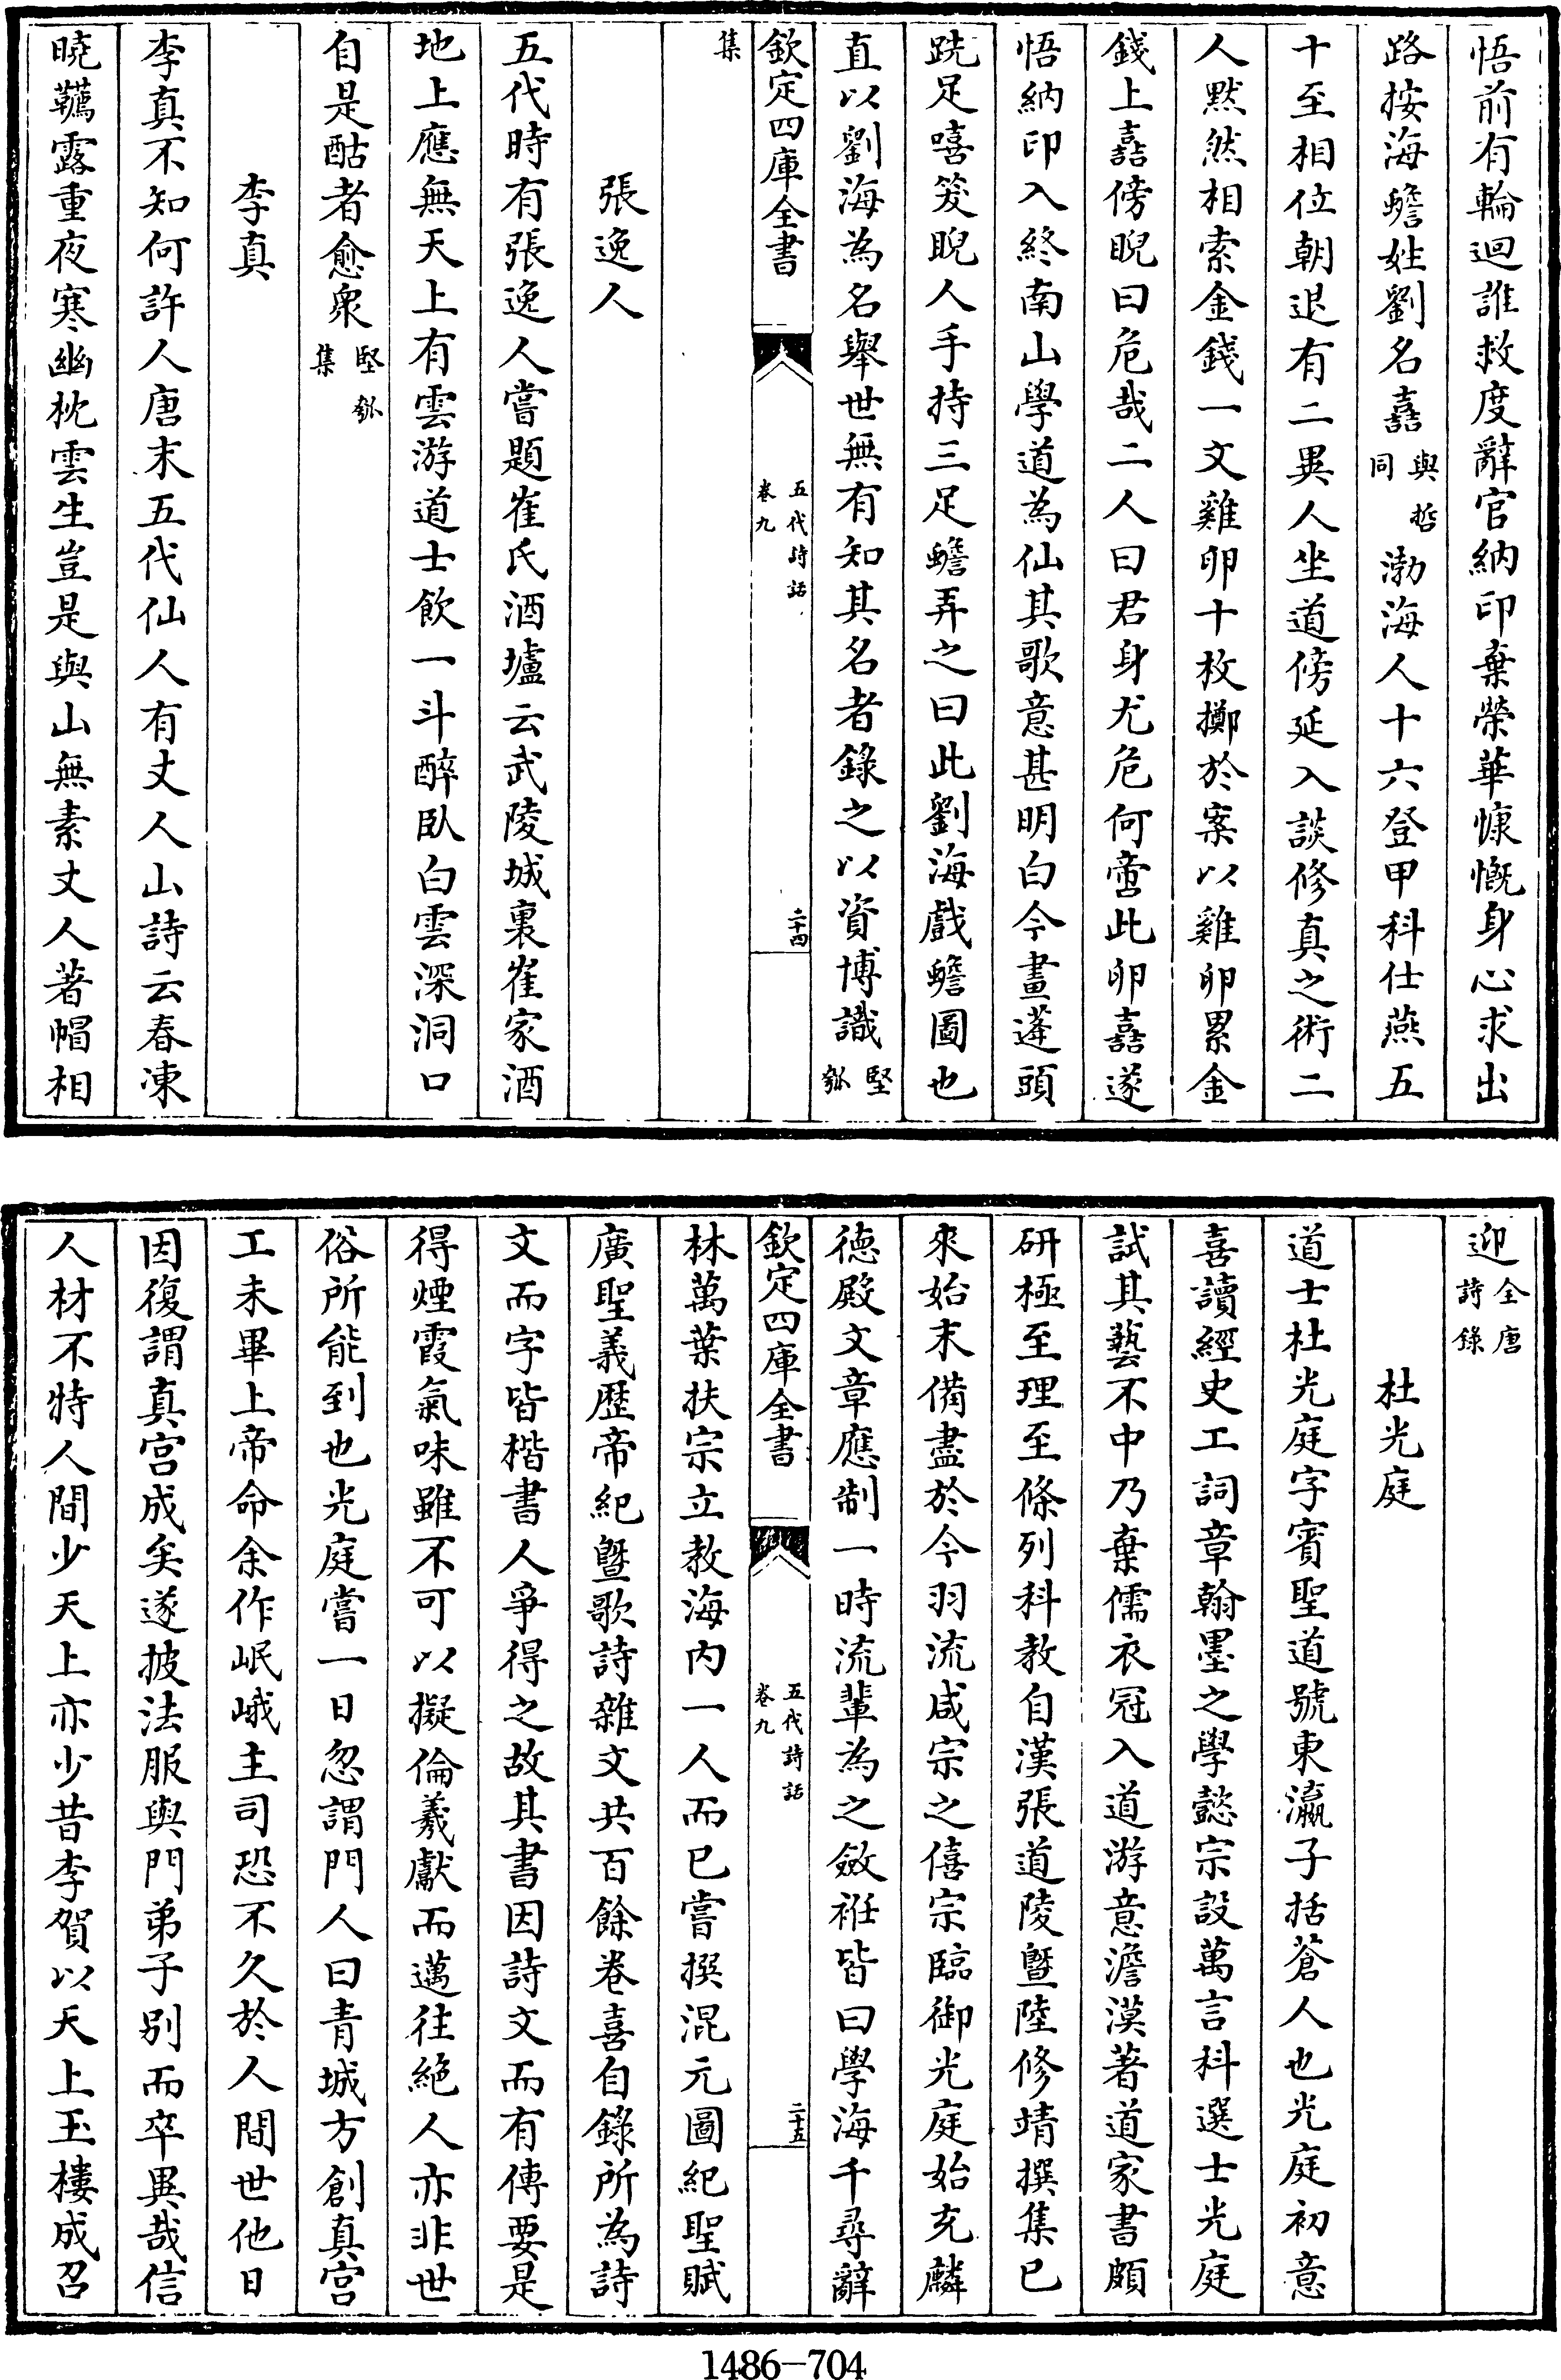 悟前有輪迴誰救度辭官納印棄榮華慷慨身心求出
路按海蟾姓劉名嚞與哲同渤海人十六登甲科仕燕五
十至相位朝退有二異人坐道傍延入談修真之術二
人默然相索金錢一文雞卵十枚擲於案以雞卵累金
錢上嚞傍睨曰危哉二人曰君身尤危何啻此卵嚞遂
悟納印入終南山學道為仙其歌意甚明白今畫蓬頭
跣足嘻笑睨人手持三足蟾弄之曰此劉海戲蟾圖也
直以劉海為名舉世無有知其名者錄之以資博識堅瓠
欽定四庫全書 五代詩話卷九 二十四
集
張逸人
五代時有張逸人嘗題崔氏酒壚云武陵城裏崔家酒
地上應無天上有雲游道士飲一斗醉臥白雲深洞口
自是酤者愈衆堅瓠集
李真
李真不知何許人唐末五代仙人有丈人山詩云春凍
曉韉露重夜寒幽枕雲生豈是與山無素丈人著帽相
迎全唐詩錄
杜光庭
道士杜光庭字賓聖道號東瀛子括蒼人也光庭初意
喜讀經史工詞章翰墨之學懿宗設萬言科選士光庭
試其藝不中乃棄儒衣冠入道游意澹漠著道家書頗
研極至理至條列科教自漢張道陵暨陸修靖撰集已
來始末備盡於今羽流咸宗之僖宗臨御光庭始充麟
德殿文章應制一時流輩為之斂袵皆曰學海千尋辭
欽定四庫全書 五代詩話卷九 二十五
林萬葉扶宗立教海內一人而已嘗撰混元圖紀聖賦
廣聖義歷帝紀暨歌詩雜文共百餘卷喜自錄所為詩
文而字皆楷書人爭得之故其書因詩文而有傳要是
得煙霞氣味雖不可以擬倫羲獻而邁往絶人亦非世
俗所能到也光庭嘗一日忽謂門人曰青城方創真宮
工未畢上帝命余作岷峨主司恐不久於人間世他日
因復謂真宮成矣遂披法服與門弟子別而卒異哉信
人材不特人間少天上亦少昔李賀以天上玉樓成召
1486-704